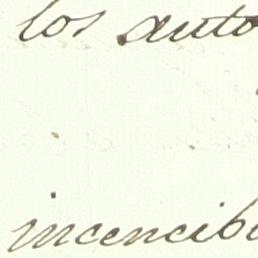 los auto
incencib